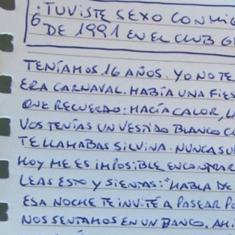 ¿TUVISTE SEXO CONMIG
DE 1991 EN EL CLUB G
TENÍAMOS 16 AÑOS. YO NO TE
ERA CARNAVAL. HABÍA UNA FIES
QUE RECUERDO: HACÍA CALOR, L
VOS TENÍAS UN VESTIDO BLANCO C
TE LLAMABAS SILVINA. NUNCA SU
HOY ME ES IMPOSIBLE ENCONTRAR
LEAS ESTO Y SIENTAS: "HABLA DE
ESA NOCHE TE INVITÉ A PASEAR PO
NOS SENTAMOS EN UN BANCO. AHÍ